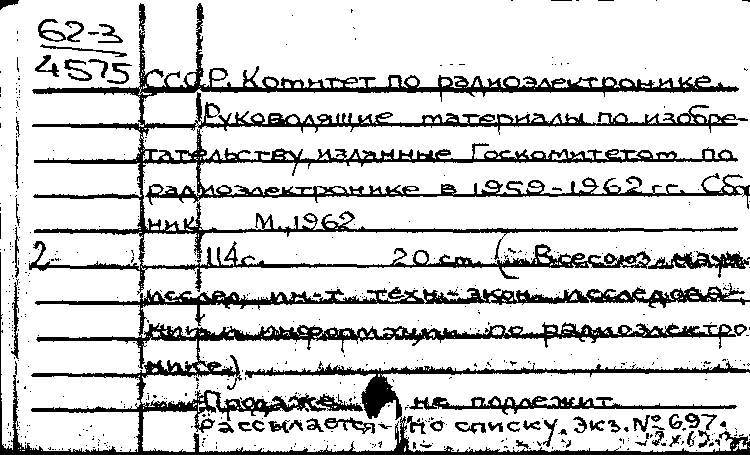 62-3
4575
СССР. Комитет по радиоэлектронике.
Руководящие материалы по изобре-
тательству, изданные Госкомитетом по
радиоэлектронике в 1959-1962 гг. Сбор
ник. М., 1962.
2 114 с. 20 см. (Всесоюз. научн
исслед. ин-т техн.-экон. исследова-
ний и информации по радиоэлектро
нике).
Продаже не подлежит
Рассылается по списку. Экз. № 697.